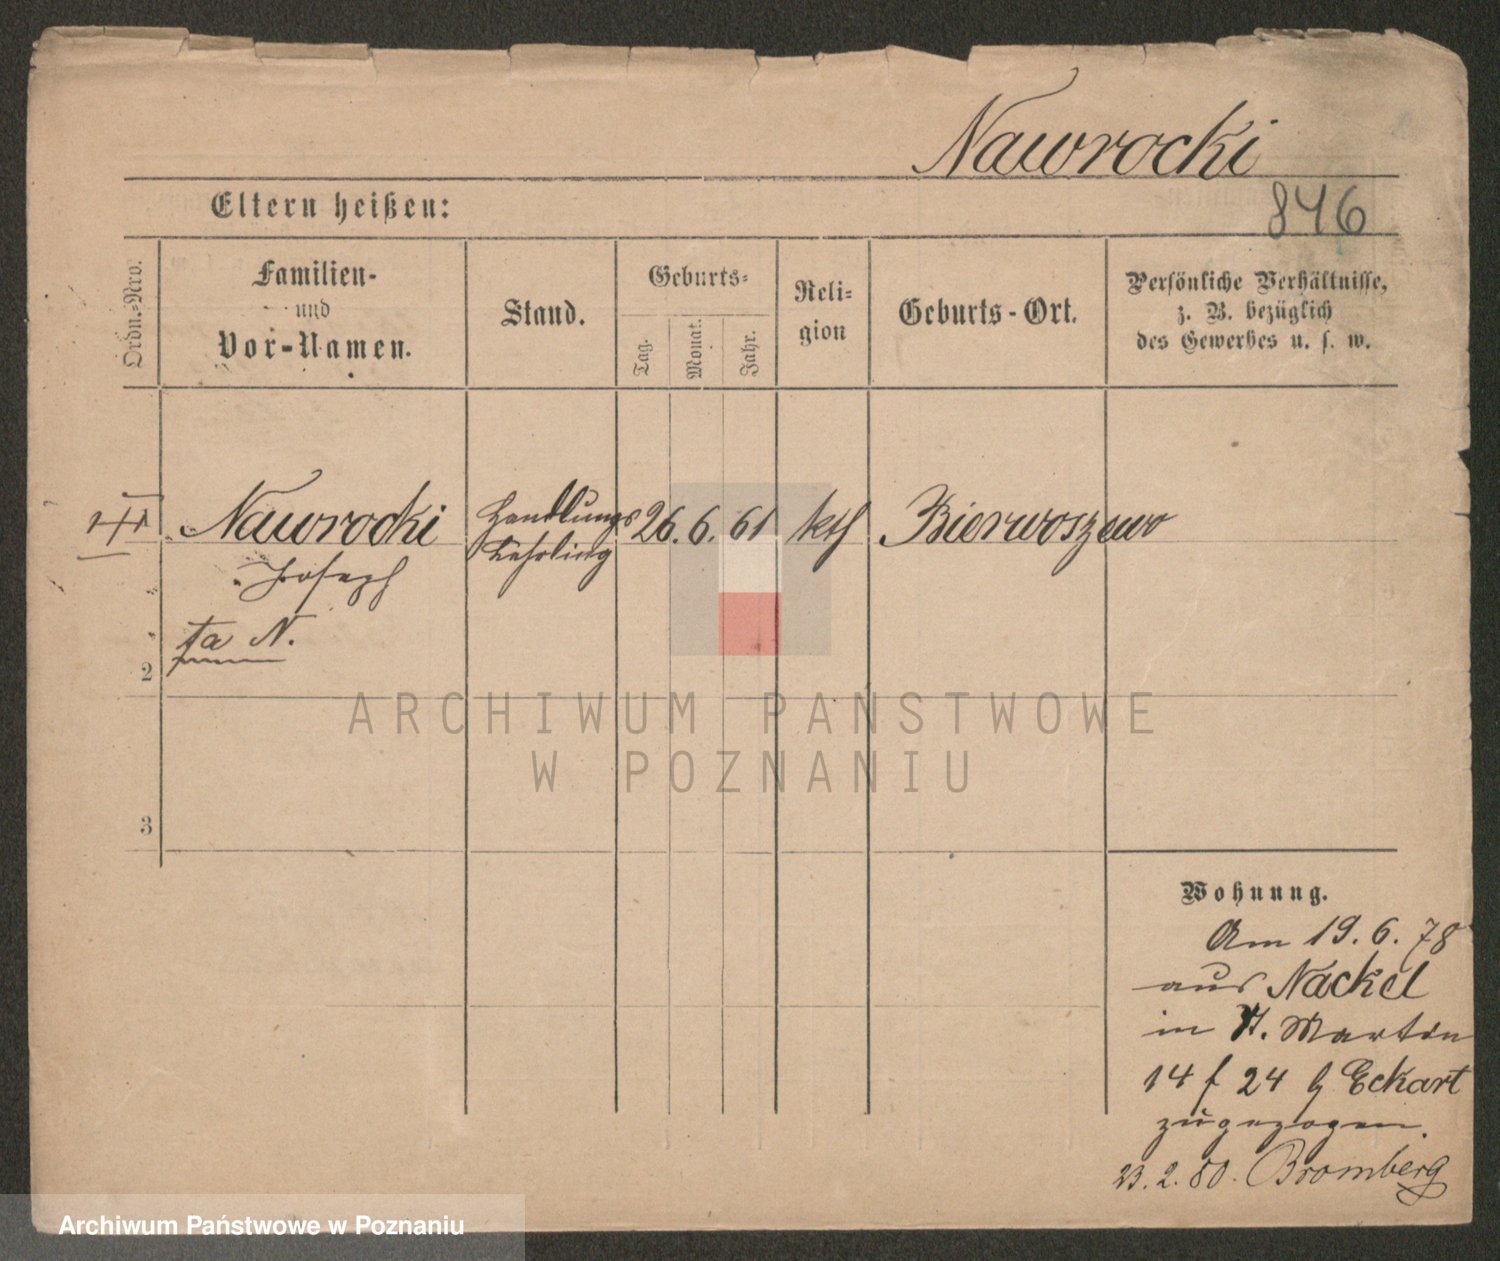 Nawrocki
Eltern heißen:
846
Ordn.-Nro.
Familien-
und
Vor-Namen.
Stand.
Geburts-
Tag.
Monat.
Jahr.
Reli-
gion
Geburts-Ort.
Persönliche Verhältnisse,
z. B. bezüglich
des Gewerbes u. s. w.
Nawrocki
Joseph
Handlungs
Lehrling
26. 6. 61
kth
Bierwoszewo
N.
2
3
ARCHIWUM PAŃSTWOWE
W POZNANIU
Wohnung.
Am 19. 6. 78
aus Nackel
in St. Martin
14 f 24 b Eckart
zugezogen.
23. 2. 80. Bromberg
Archiwum Państwowe w Poznaniu